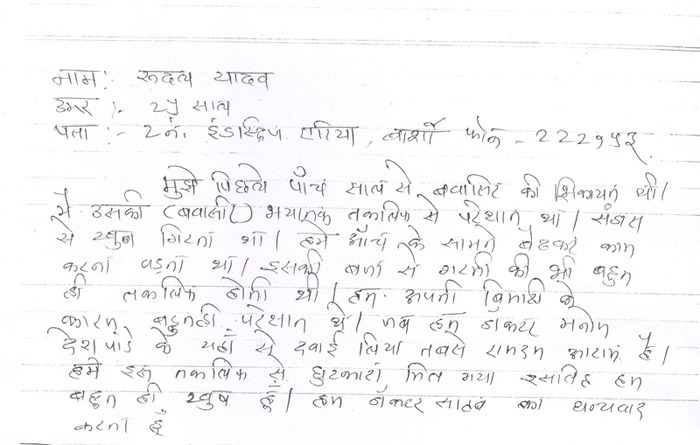 नाम:- रूदल यादव
उमर :- 25 साल
पता :- 2 नं. इंडस्ट्रिज एरिया, बार्शी फोन - 222953.
मुझे पिछले पाँच साल से बवासिर की शिकायत थी।
मै उसकी (बवासीर) भयानक तकालिफ से परेशान था। संडास
से खुन गिरता था। हमे आँच के सामने बैठकर काम
करना पडता था। इसकी वजा से गरमी की भी बहुत
ही तकालिफ होती थी। हम अपनी बिमारी के
कारन बहुतही परेशान थे। जब हम डाकटर मनोज
देशपांडे के यहाँ से दवाई लिया तबसे एकदम आराम है।
हमे इस तकालिफ से छुटकारा मिल गया इसलिए हम
बहुत ही खुष हूँ। हम डॉक्टर साहब का धन्यवाद
करता हूँ